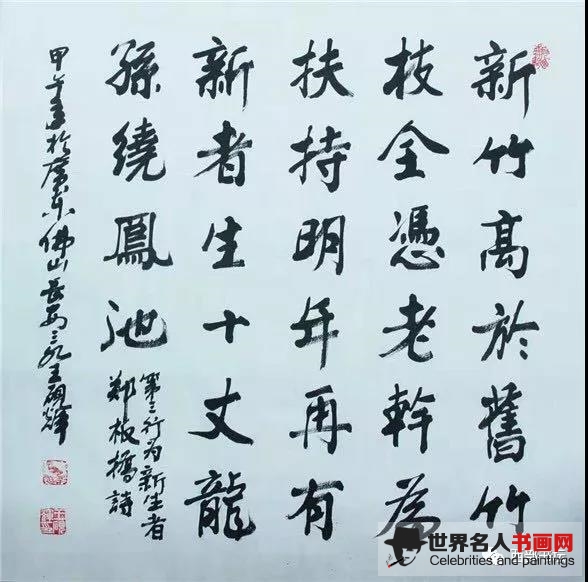 新竹高於舊竹
枝全憑老幹為
扶持明年再有
新者生十丈龍
孫繞鳳池
第三行为新生者
郑板橋詩
甲午年於廣東佛山长安三九王硯辉
世界名人书画网
Celebrities and painting